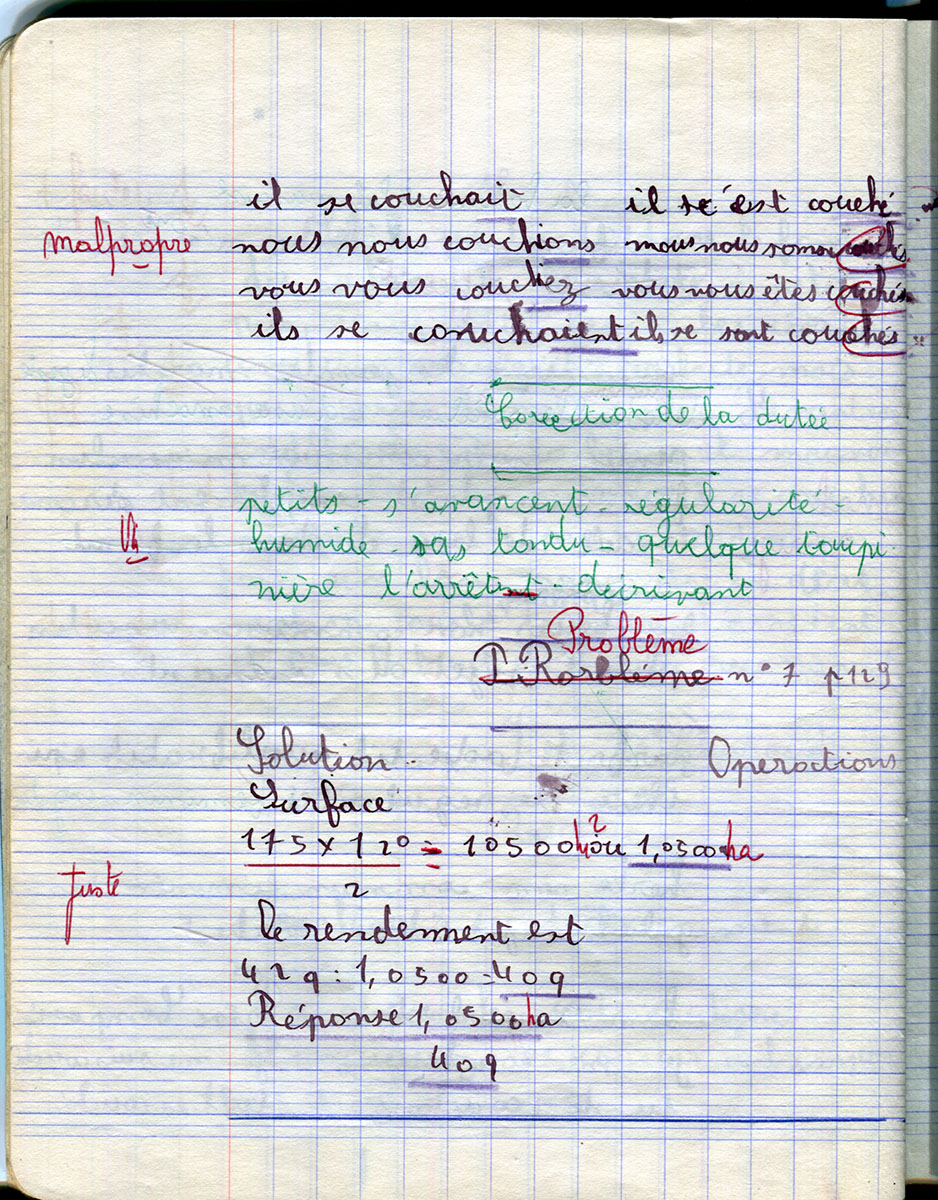 il se couchait il se est couché
malpropre nous nous couchions nous nous sommes couchés
vous vous couchiez vous vous êtes couchés
ils se couchaient ils se sont couchés
Correction de la dictée
petits - s'avancent - régularité -
Vu humide - ras tondu - quelque taupi
nière l'arrêtent - décrivant
Problème
n° 7 p 129
Solution Operactions
Surface
175 x 120 = 10500 m2 ou 1,0500 ha
juste 2
Le rendement est
42 q : 1,0500 = 40 q
Réponse 1,0500 ha
40 q